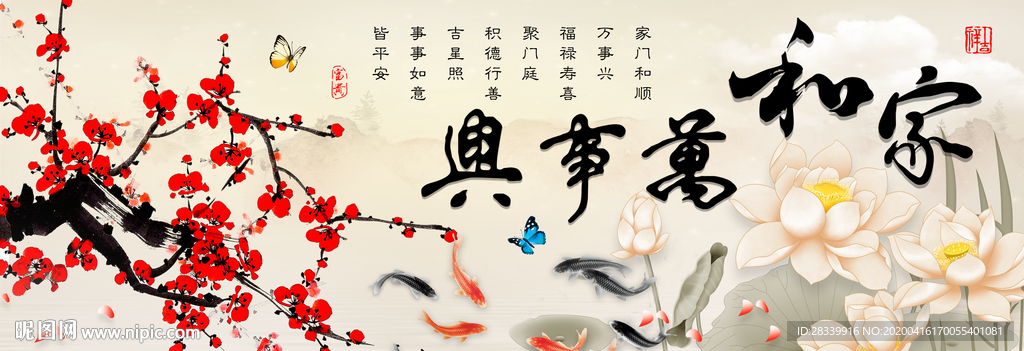 家和萬事興
家门和顺
万事兴
福禄寿喜
聚门庭
积德行善
吉星照
事事如意
皆平安
吉祥
富贵
昵图网 www.nipic.com
ID:28339916 NO:20200416170055401081